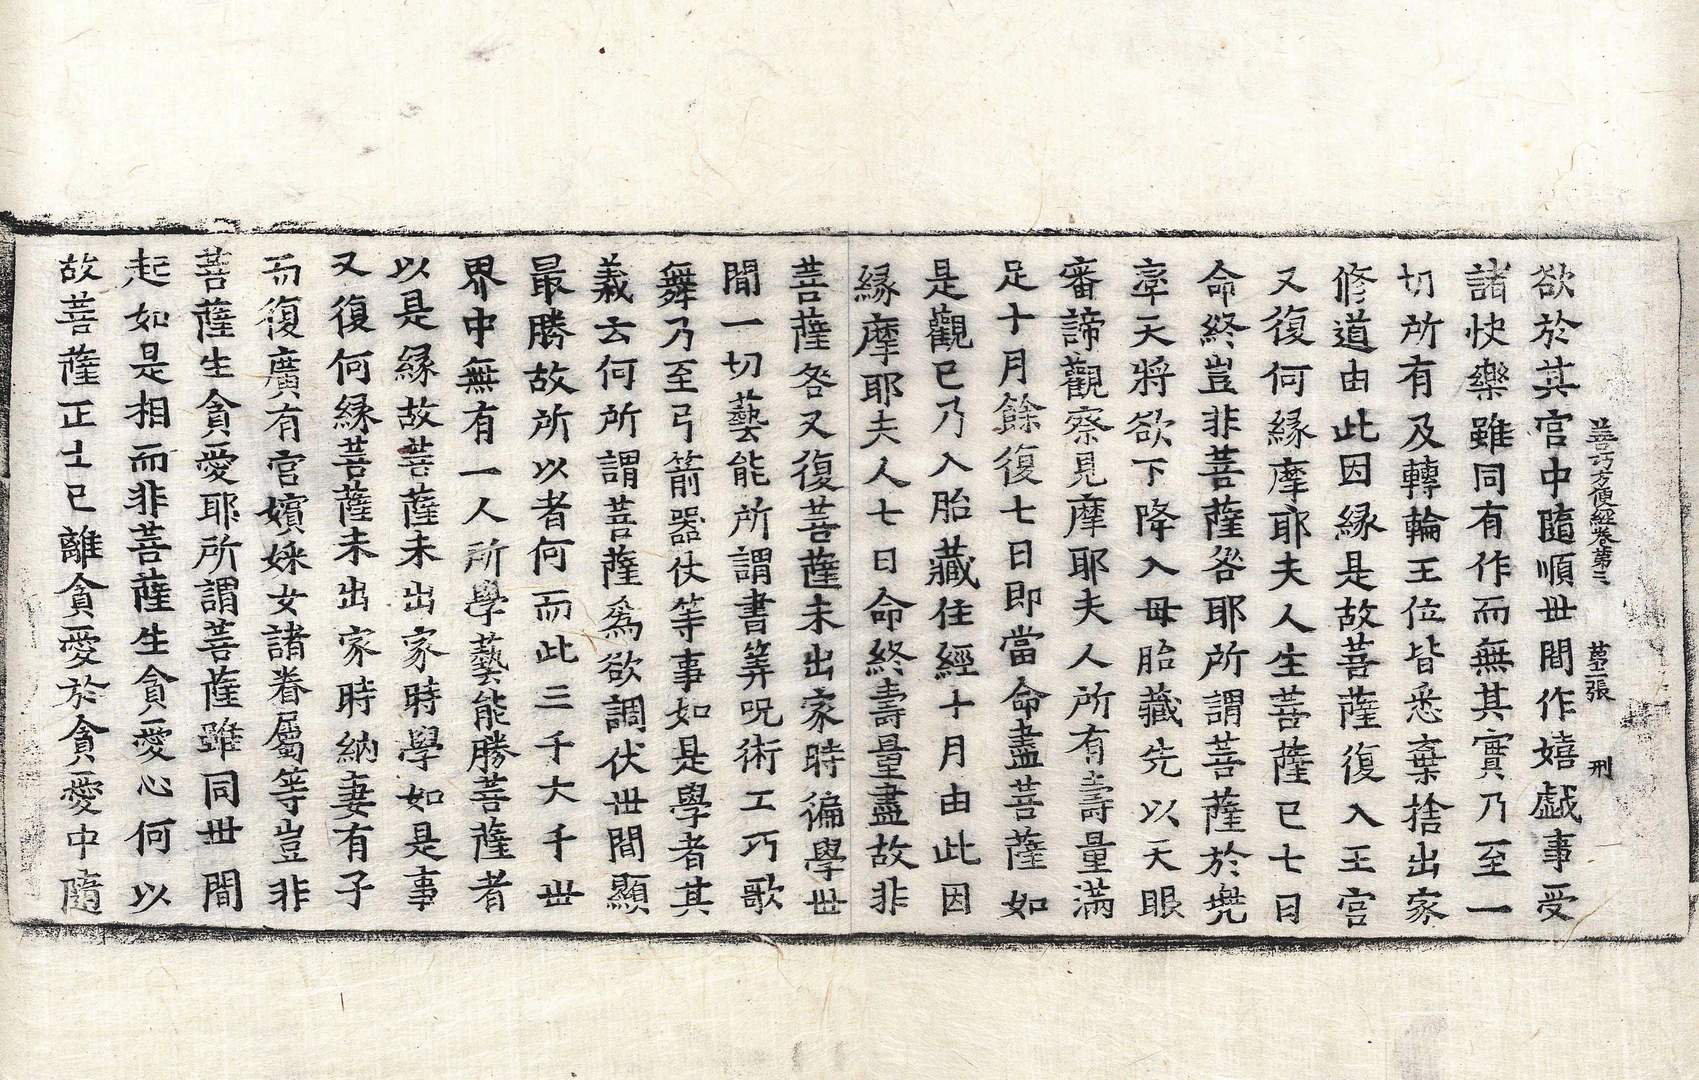 善巧方便經卷第三　第二張　刑
欲於其宮中隨順世間作嬉戲事受
諸快樂雖同有作而無其實乃至一
切所有及轉輪王位皆悉棄捨出家
修道由此因緣是故菩薩復入王宮
又復何緣摩耶夫人生菩薩已七日
命終豈非菩薩咎耶所謂菩薩於兠
率天將欲下降入母胎藏先以天眼
審諦觀察見摩耶夫人所有壽量滿
足十月餘復七日即當命盡菩薩如
是觀已乃入胎藏住經十月由此因
緣摩耶夫人七日命終壽量盡故非
菩薩咎又復菩薩未出家時徧學世
間一切藝能所謂書筭呪術工巧歌
舞乃至弓箭器仗等事如是學者其
義云何所謂菩薩為欲調伏世間顯
最勝故所以者何而此三千大千世
界中無有一人所學藝能勝菩薩者
以是緣故菩薩未出家時學如是事
又復何緣菩薩未出家時納妻有子
而復廣有宮嬪婇女諸眷屬等豈非
菩薩生貪愛耶所謂菩薩雖同世間
起如是相而非菩薩生貪愛心何以
故菩薩正士已離貪愛於貪愛中隨